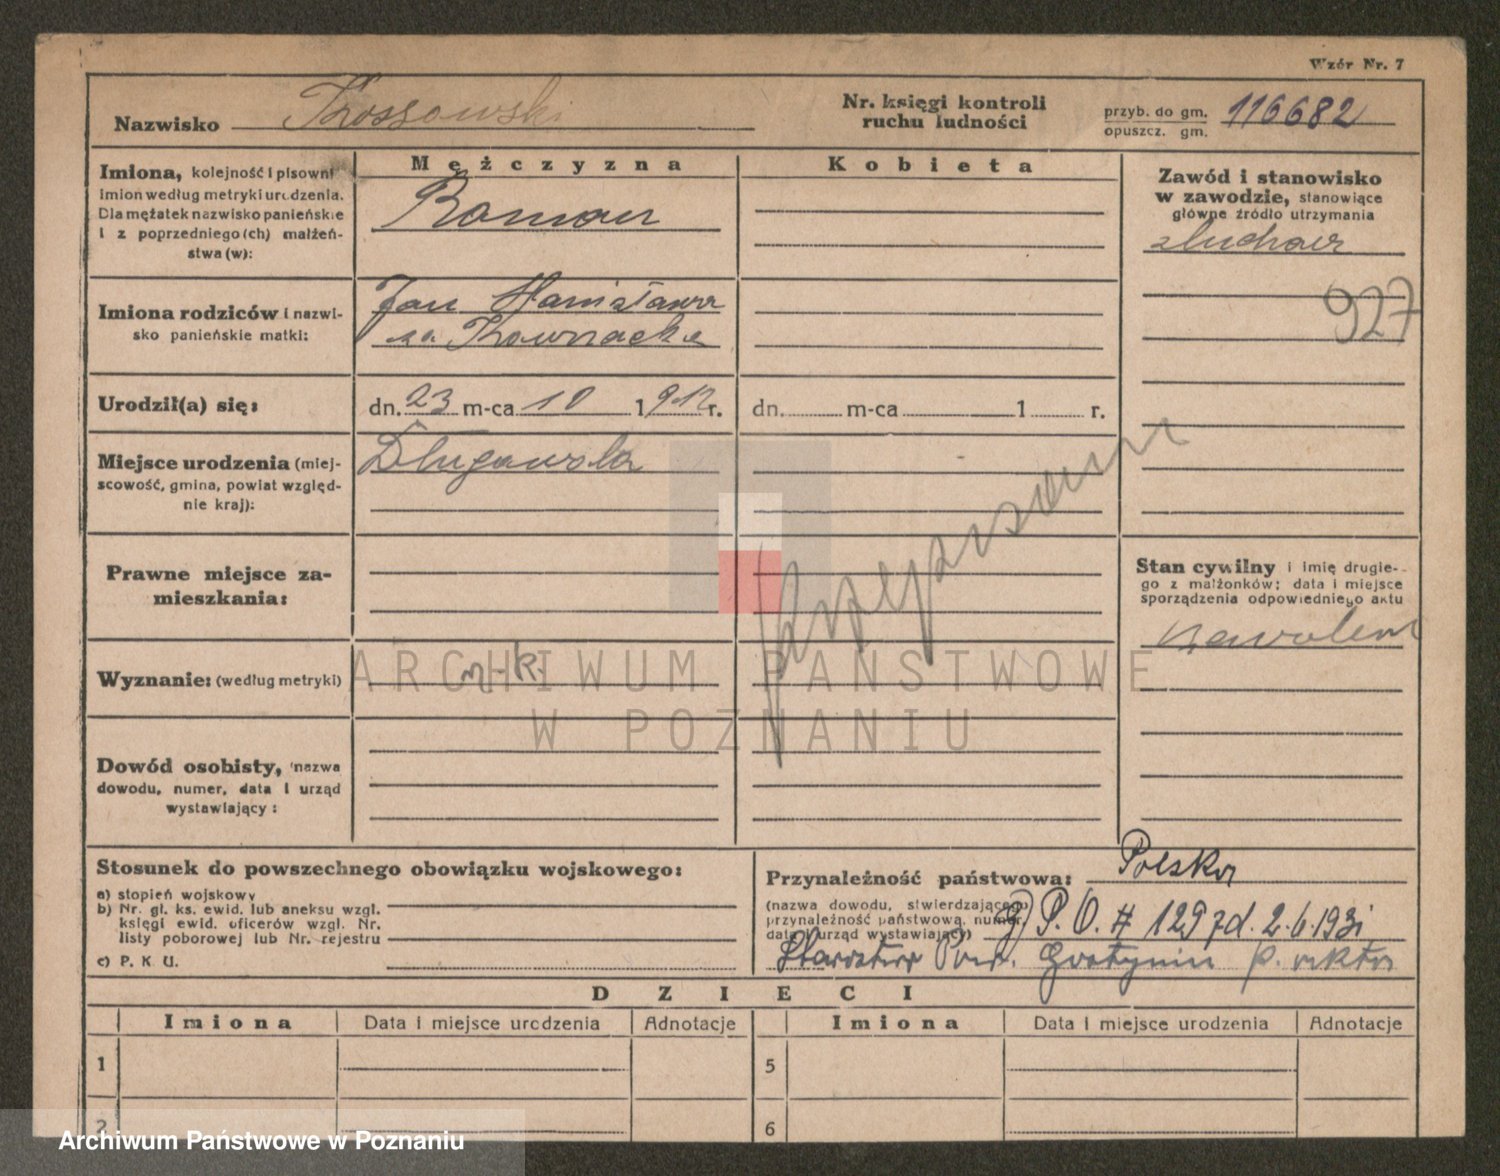 Wzór Nr. 7
Nazwisko Kossowski
Nr. księgi kontroli ruchu ludności
przyb. do gm.
opuszcz. gm.
116682
Imiona, kolejność i pisownia
imion według metryki urodzenia.
Dla mężatek nazwisko panieńskie
i z poprzedniego(ch) małżeń-
stwa(w):
Mężczyzna
Roman
Kobieta
Zawód i stanowisko
w zawodzie, stanowiące
główne źródło utrzymania
słuchacz
927
Imiona rodziców i nazwi-
sko panieńskie matki:
Jan Stanisława
Urodził(a) się:
dn. 23 m-ca 10 1912 r.
dn. m-ca 1 r.
Miejsce urodzenia (miej-
scowość, gmina, powiat względ-
nie kraj):
Długawola
przepisano
Prawne miejsce za-
mieszkania:
Stan cywilny i imię drugie-
go z małżonków; data i miejsce
sporządzenia odpowiedniego aktu
kawaler
Wyznanie: (według metryki)
ARCHIWUM PAŃSTWOWE
W POZNANIU
Dowód osobisty, nazwa
dowodu, numer, data i urząd
wystawiający:
Stosunek do powszechnego obowiązku wojskowego:
a) stopień wojskowy
b) Nr. gł. ks. ewid. lub aneksu wzgl.
księgi ewid. oficerów wzgl. Nr.
listy poborowej lub Nr. rejestru
c) P. K. U.
Przynależność państwowa: Polska
(nazwa dowodu, stwierdzającego
przynależność państwową, numer,
data i urząd wystawiający)
P. O. # 1297 d. 2.6.1931
Starostwa Pow. Gostynin
DZIECI
Imiona Data i miejsce urodzenia Adnotacje Imiona Data i miejsce urodzenia Adnotacje
1 5
2 6
Archiwum Państwowe w Poznaniu